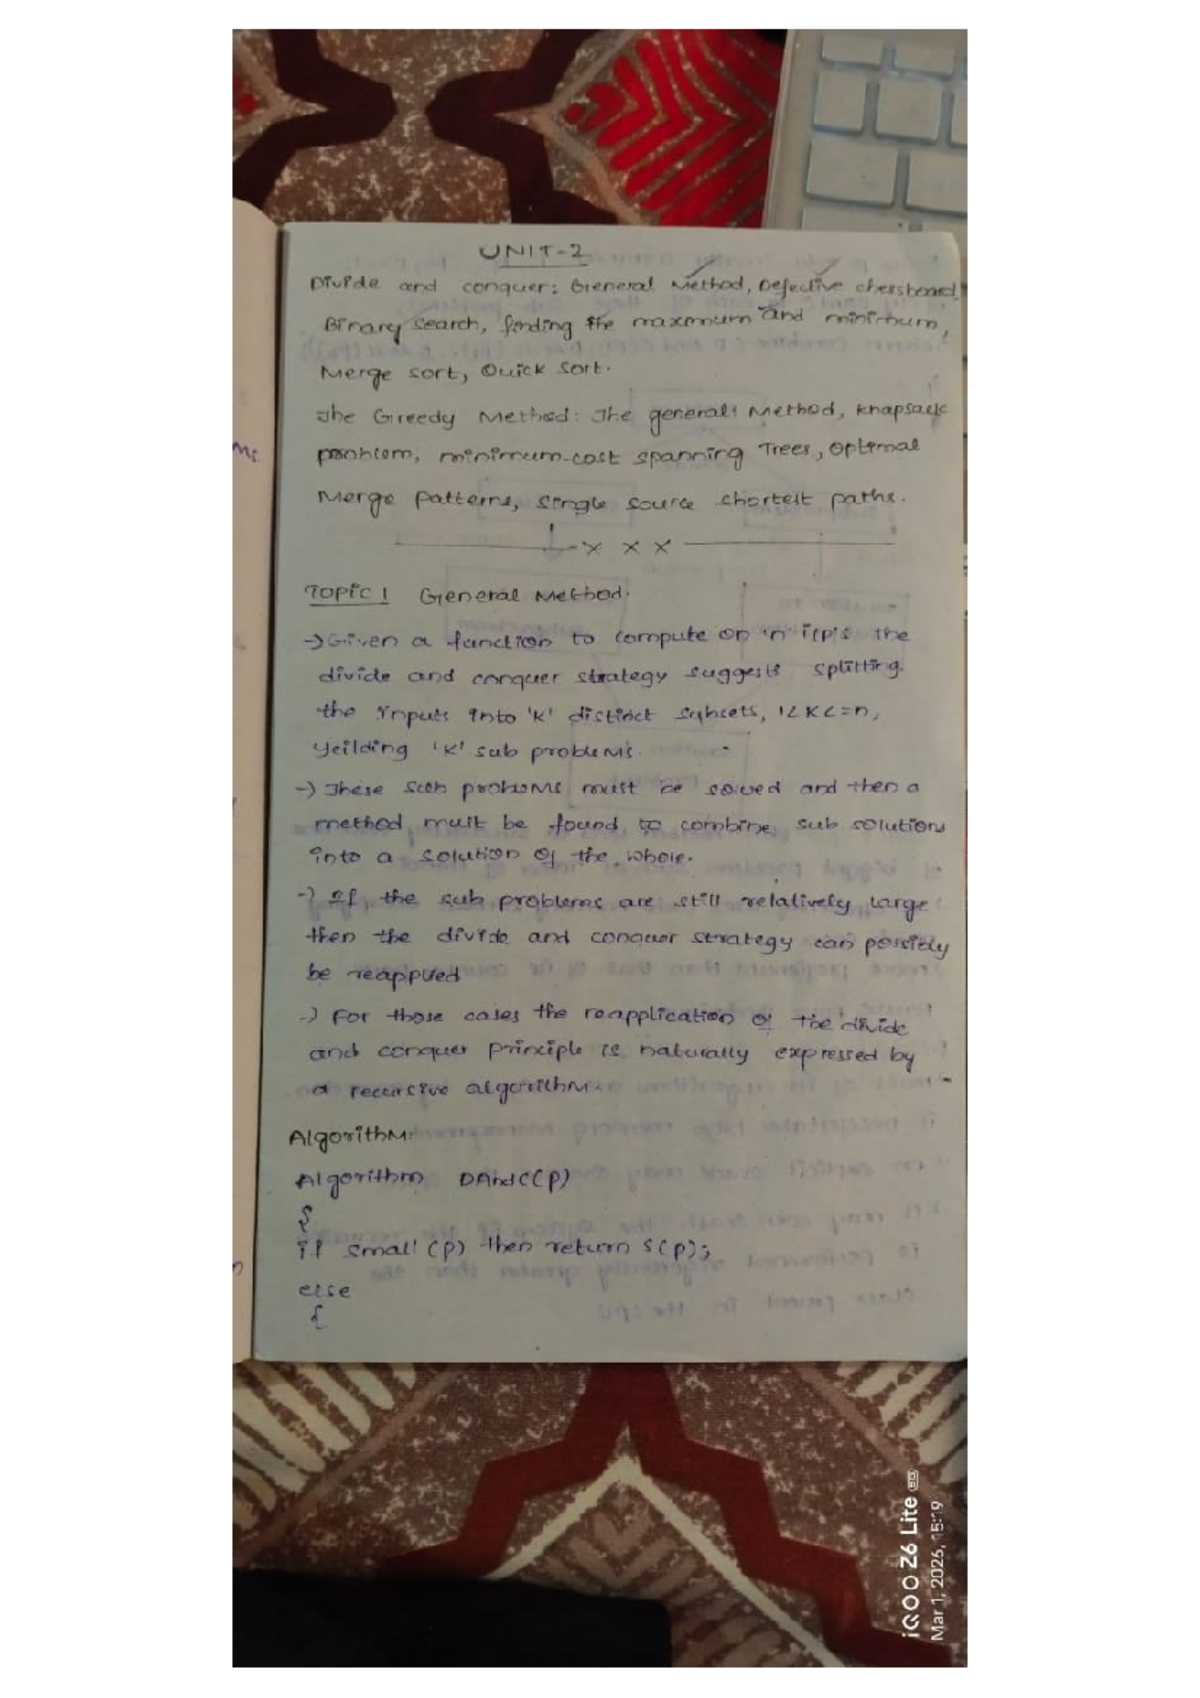 UNIT-2
Divide and conquer: General Method, Defective chessboard,
Binary search, finding the maximum and minimum,
Merge sort, Quick sort.
The Greedy Method: The general Method, knapsack
problem, minimum-cost spanning Trees, optimal
Merge patterns, single source shortest paths.
x x x
TOPIC 1 General Method.
→ Given a function to compute on 'n' i/p's the
divide and conquer strategy suggests splitting
the inputs into 'K' distinct subsets, 1<K<=n,
yeilding 'K' sub problems.
→ These sub problems must be solved and then a
method must be found to combine sub solutions
into a solution of the whole.
→ If the sub problems are still relatively large
then the divide and conquer strategy can possibly
be reapplied
→ For those cases the reapplication of the divide
and conquer principle is naturally expressed by
a recursive algorithm.
Algorithm:
Algorithm DAndC(P)
{
if small(p) then return s(p);
else
{
iQOO Z6 Lite 5G
Mar 1, 2026, 15:19